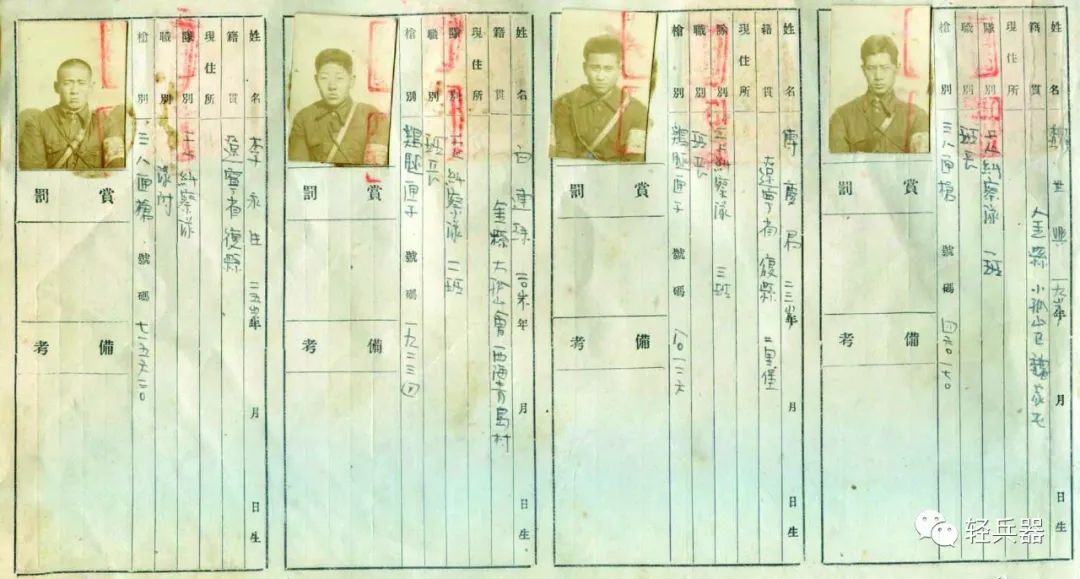 姓名 世興 九岁年 月 日生
籍貫 金縣 小孤山 家屯
現住所
隊別 糾察隊 一班
職別 班長
槍別 三八匣槍 號碼 四六〇一七〇
賞罰
備考
姓名 傅慶 二三岁年 月 日生
籍貫 遼寧省復縣 二里堡
現住所
隊別 糾察隊 三班
職別 班長
槍別 鶏腿匣子 號碼 〇一二六
賞罰
備考
姓名 白連珠 二〇岁年 月 日生
籍貫 金縣大孤山會西海青島村
現住所
隊別 糾察隊 二班
職別 班長
槍別 鶏腿匣子 號碼 一九二三
賞罰
備考
姓名 李永庄 二五岁年 月 日生
籍貫 遼寧省復縣
現住所
隊別 糾察隊
職別 隊附
槍別 三八匣槍 號碼 七一五六二〇
賞罰
備考
轻兵器